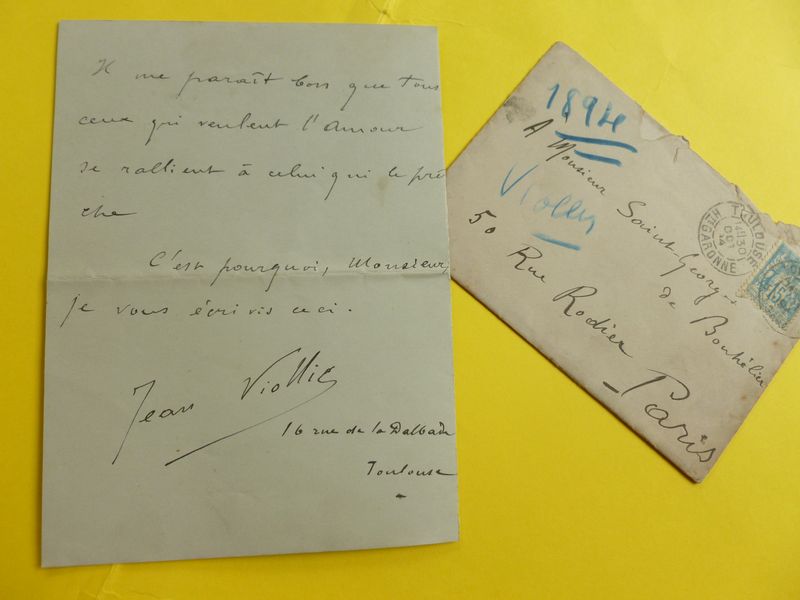 Il me paraît bon que tous
ceux qui veulent l'Amour
se rallient à celui qui le prê
che
C'est pourquoi, Monsieur,
je vous écrivis ceci.
Jean Viollis
16 rue de la Dalbade
Toulouse
1894
A Monsieur Saint-Georges
de Bouhélier
50 Rue Rodier
Paris
TOULOUSE
Hte GARONNE
OCT
15